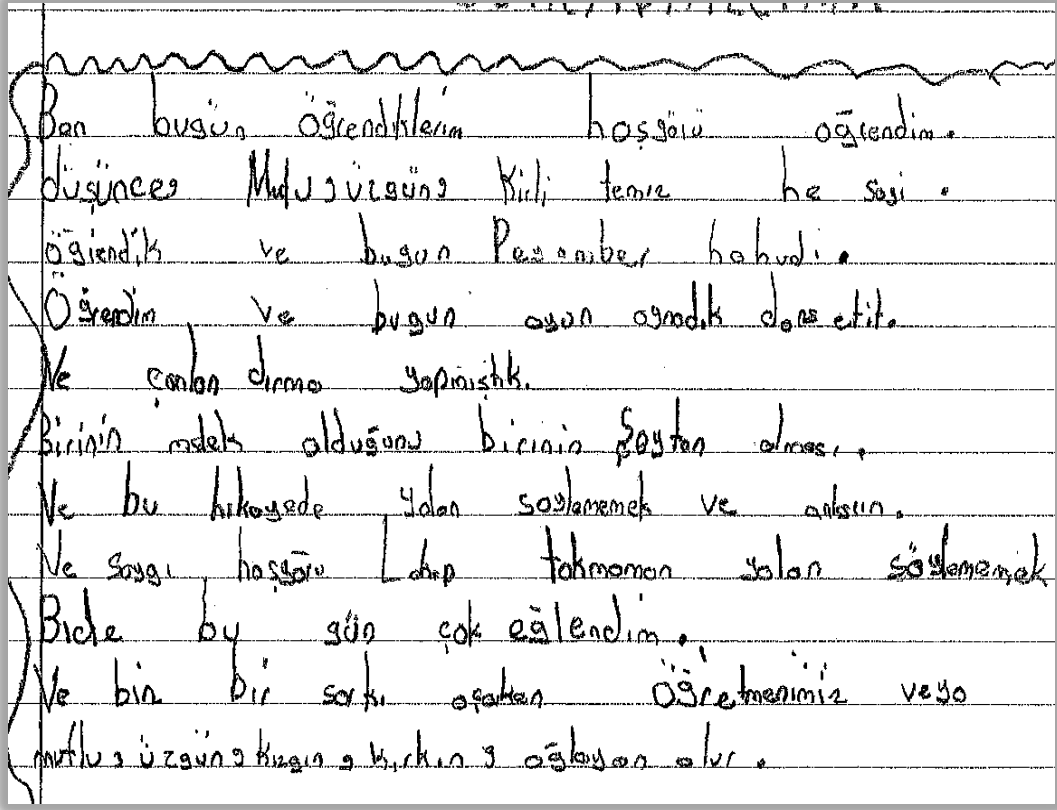 Ben bugün öğrendiklerim hoşgörü öğrendim.
düşünce, Mutlu, üzgün, Kirli temiz
öğrendik ve bugun
Öğrendim ve bugun oyun oynadık ders
Ve çanlan dırma yapmıştık.
Birinin olduğunu birinin Şeytan olması.
Ve bu hikayede yalan söylememek ve
Ve saygı hoşgörü Lakap takmaman yalan söylememek
Bide bu gün çok eğlendim.
Ve biz bir şarkı öğretmenimiz veya
mutlu, üzgün, kızgın, kırkın, ağlayan olur.